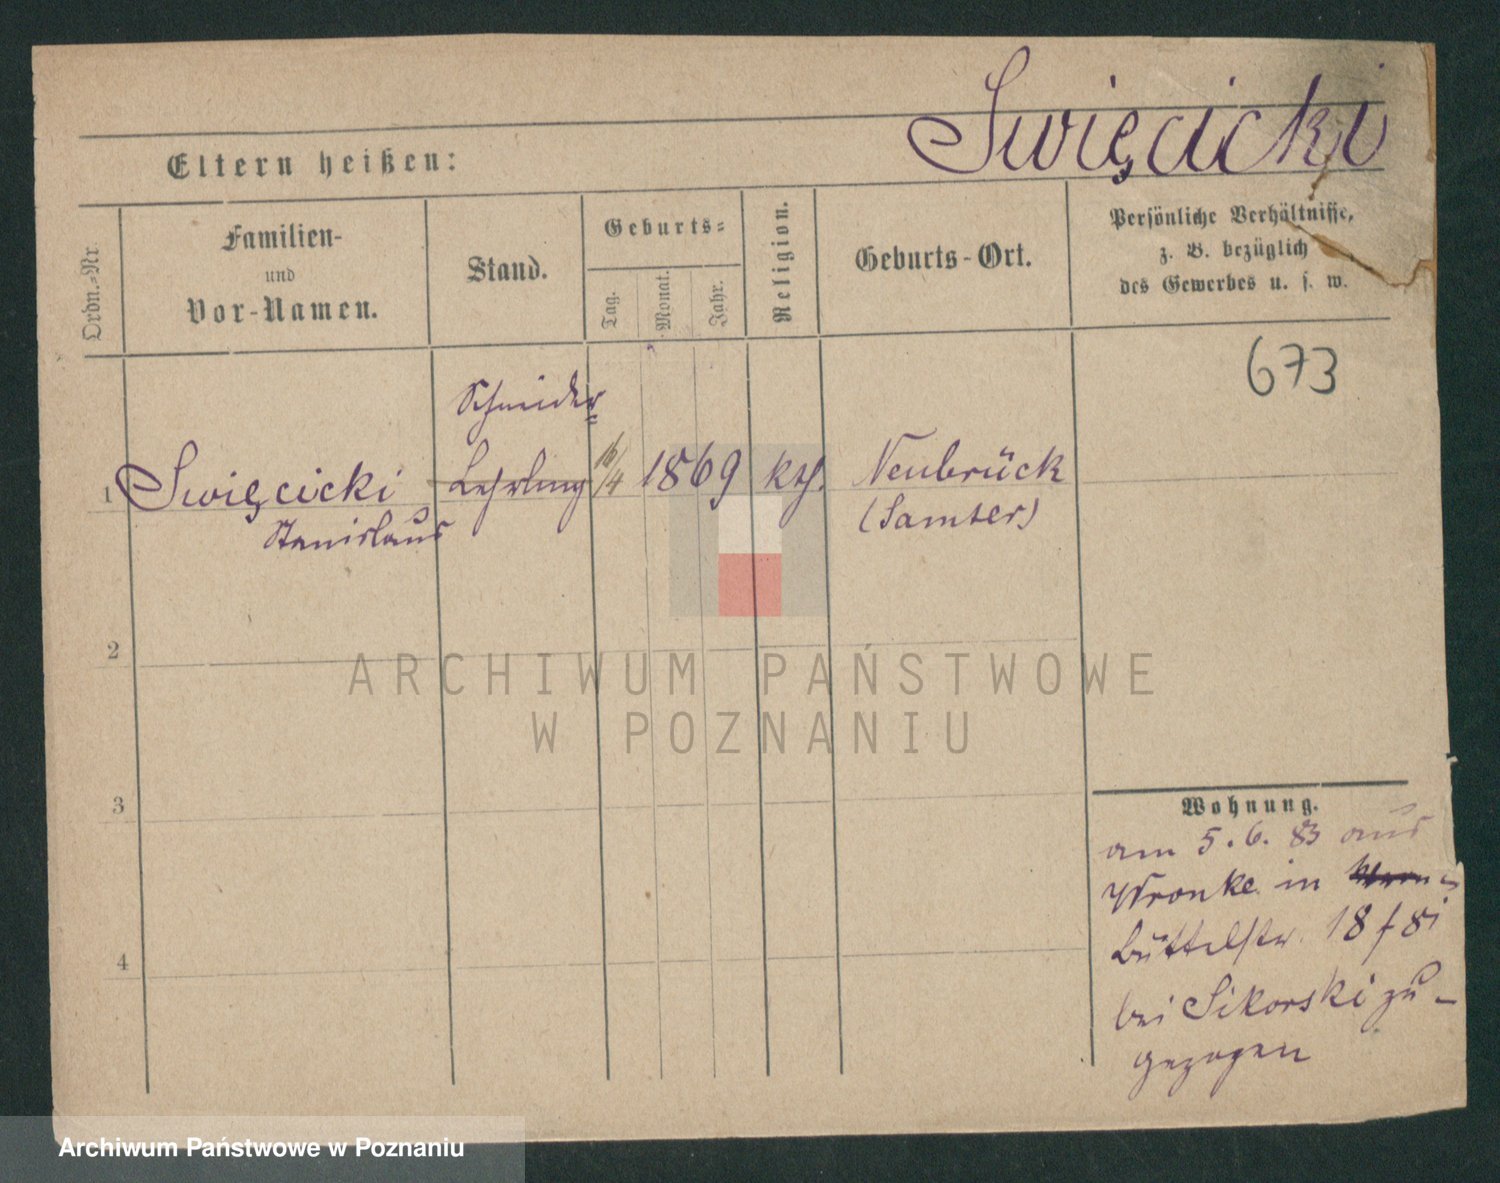 Swięcicki
Eltern heißen:
Ordn.-Nr.
Familien-
und
Vor-Namen.
Stand.
Geburts-
Tag.
Monat.
Jahr.
Religion.
Geburts-Ort.
Persönliche Verhältnisse,
z. B. bezüglich
des Gewerbes u. s. w.
673
Schneider
1 Swięcicki Lehrling 16/4 1869 kth. Neubrück
Stanislaus (Samter)
2
3
4
ARCHIWUM PAŃSTWOWE
W POZNANIU
Wohnung.
am 5. 6. 83 aus
Wronke in
Büttelstr. 18 f 8i
bei Sikorski zu-
gezogen
Archiwum Państwowe w Poznaniu